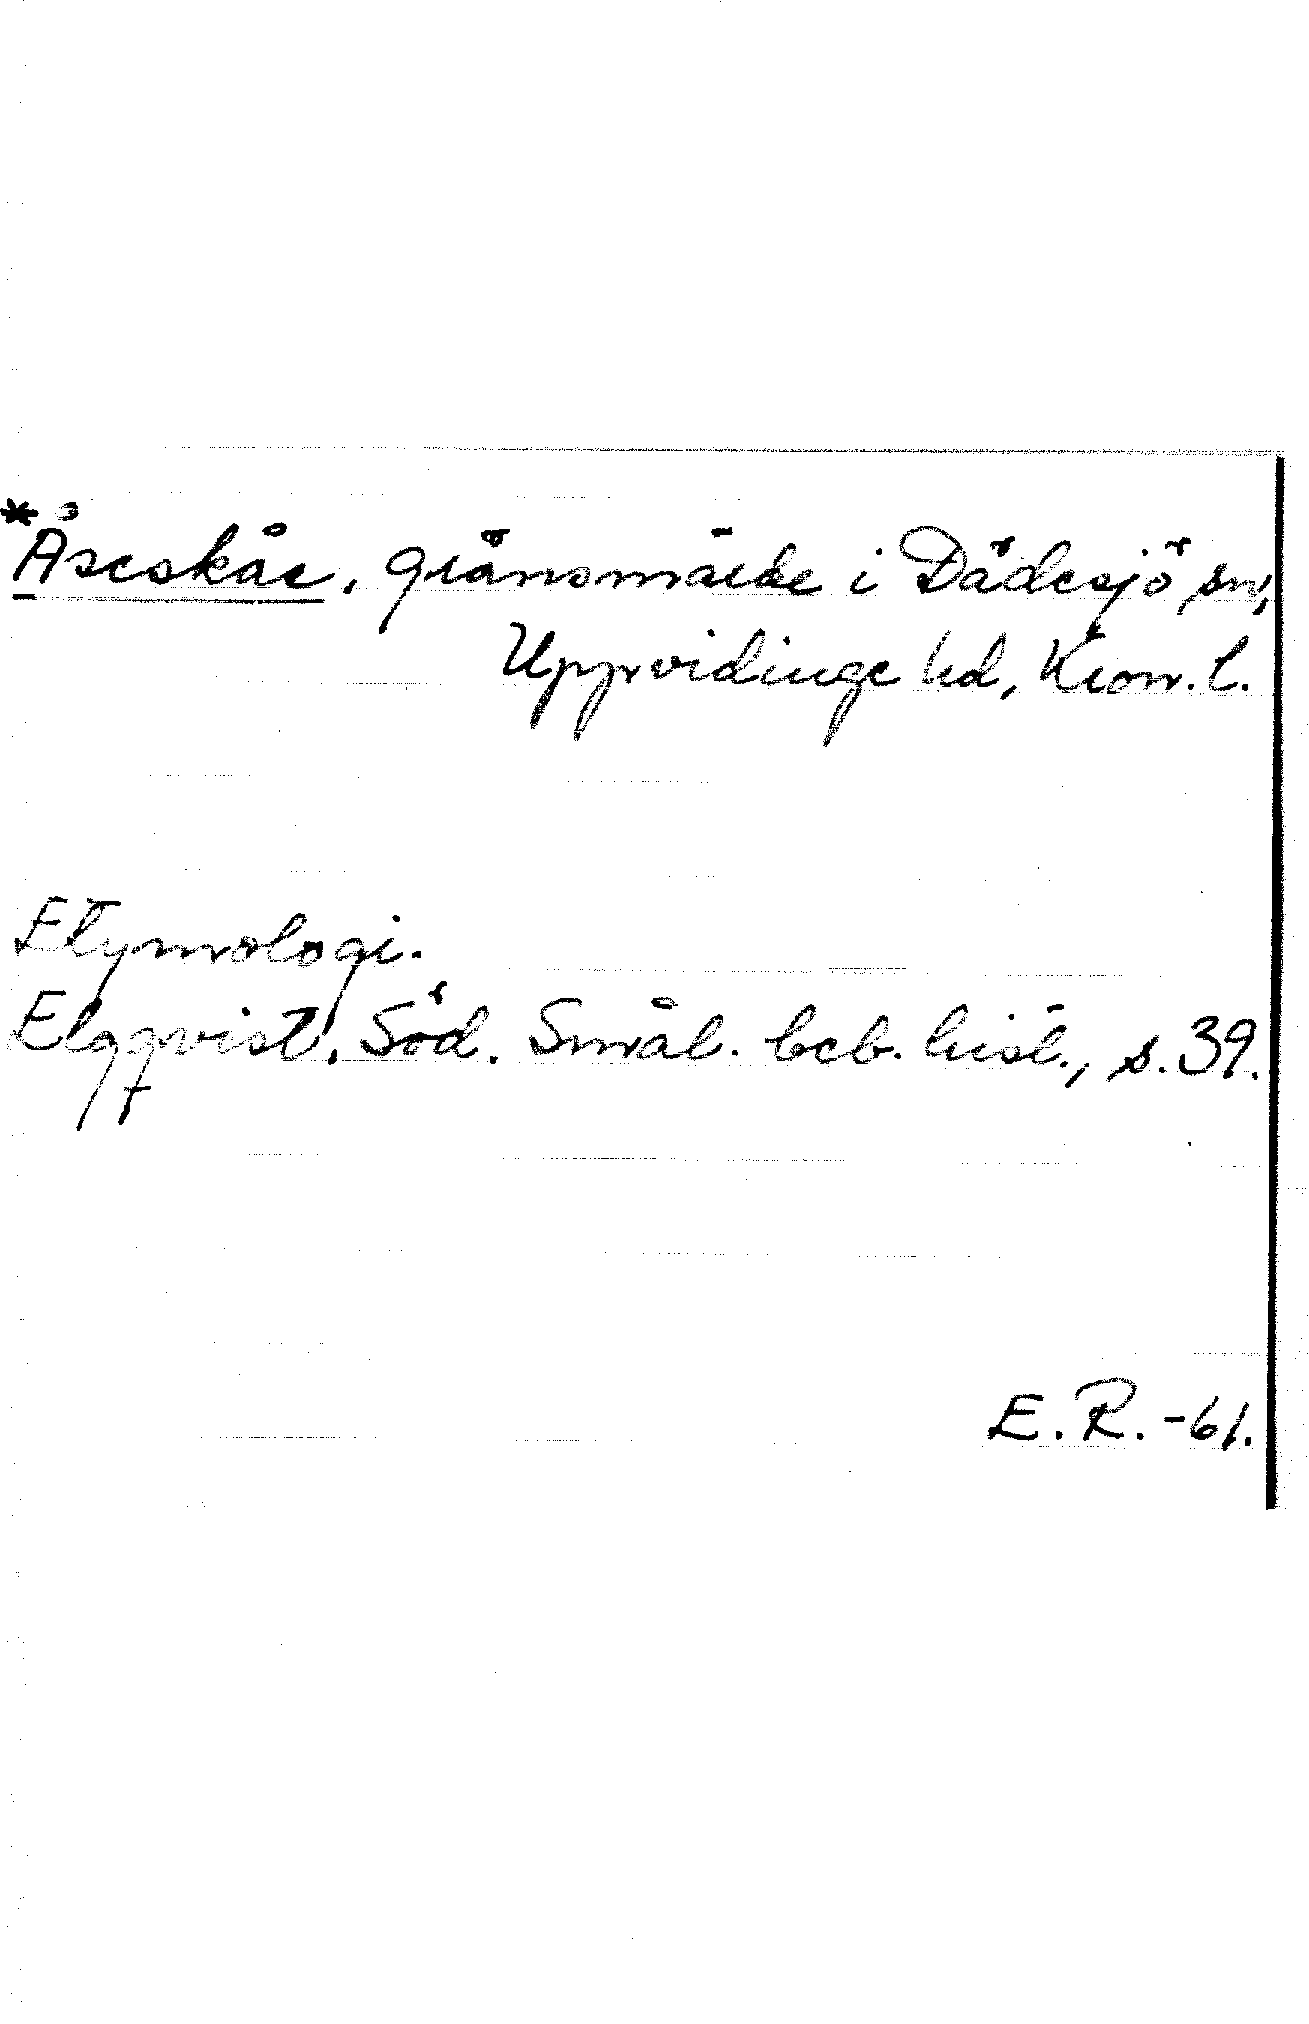 *Åseskåe, gränsmärke i Dädesjö sn,
Uppvidinge hd, Kron. l.
Etymologi.
Elgqvist, Söd. Smål. beb. hist., s. 39.
E. R. -61.